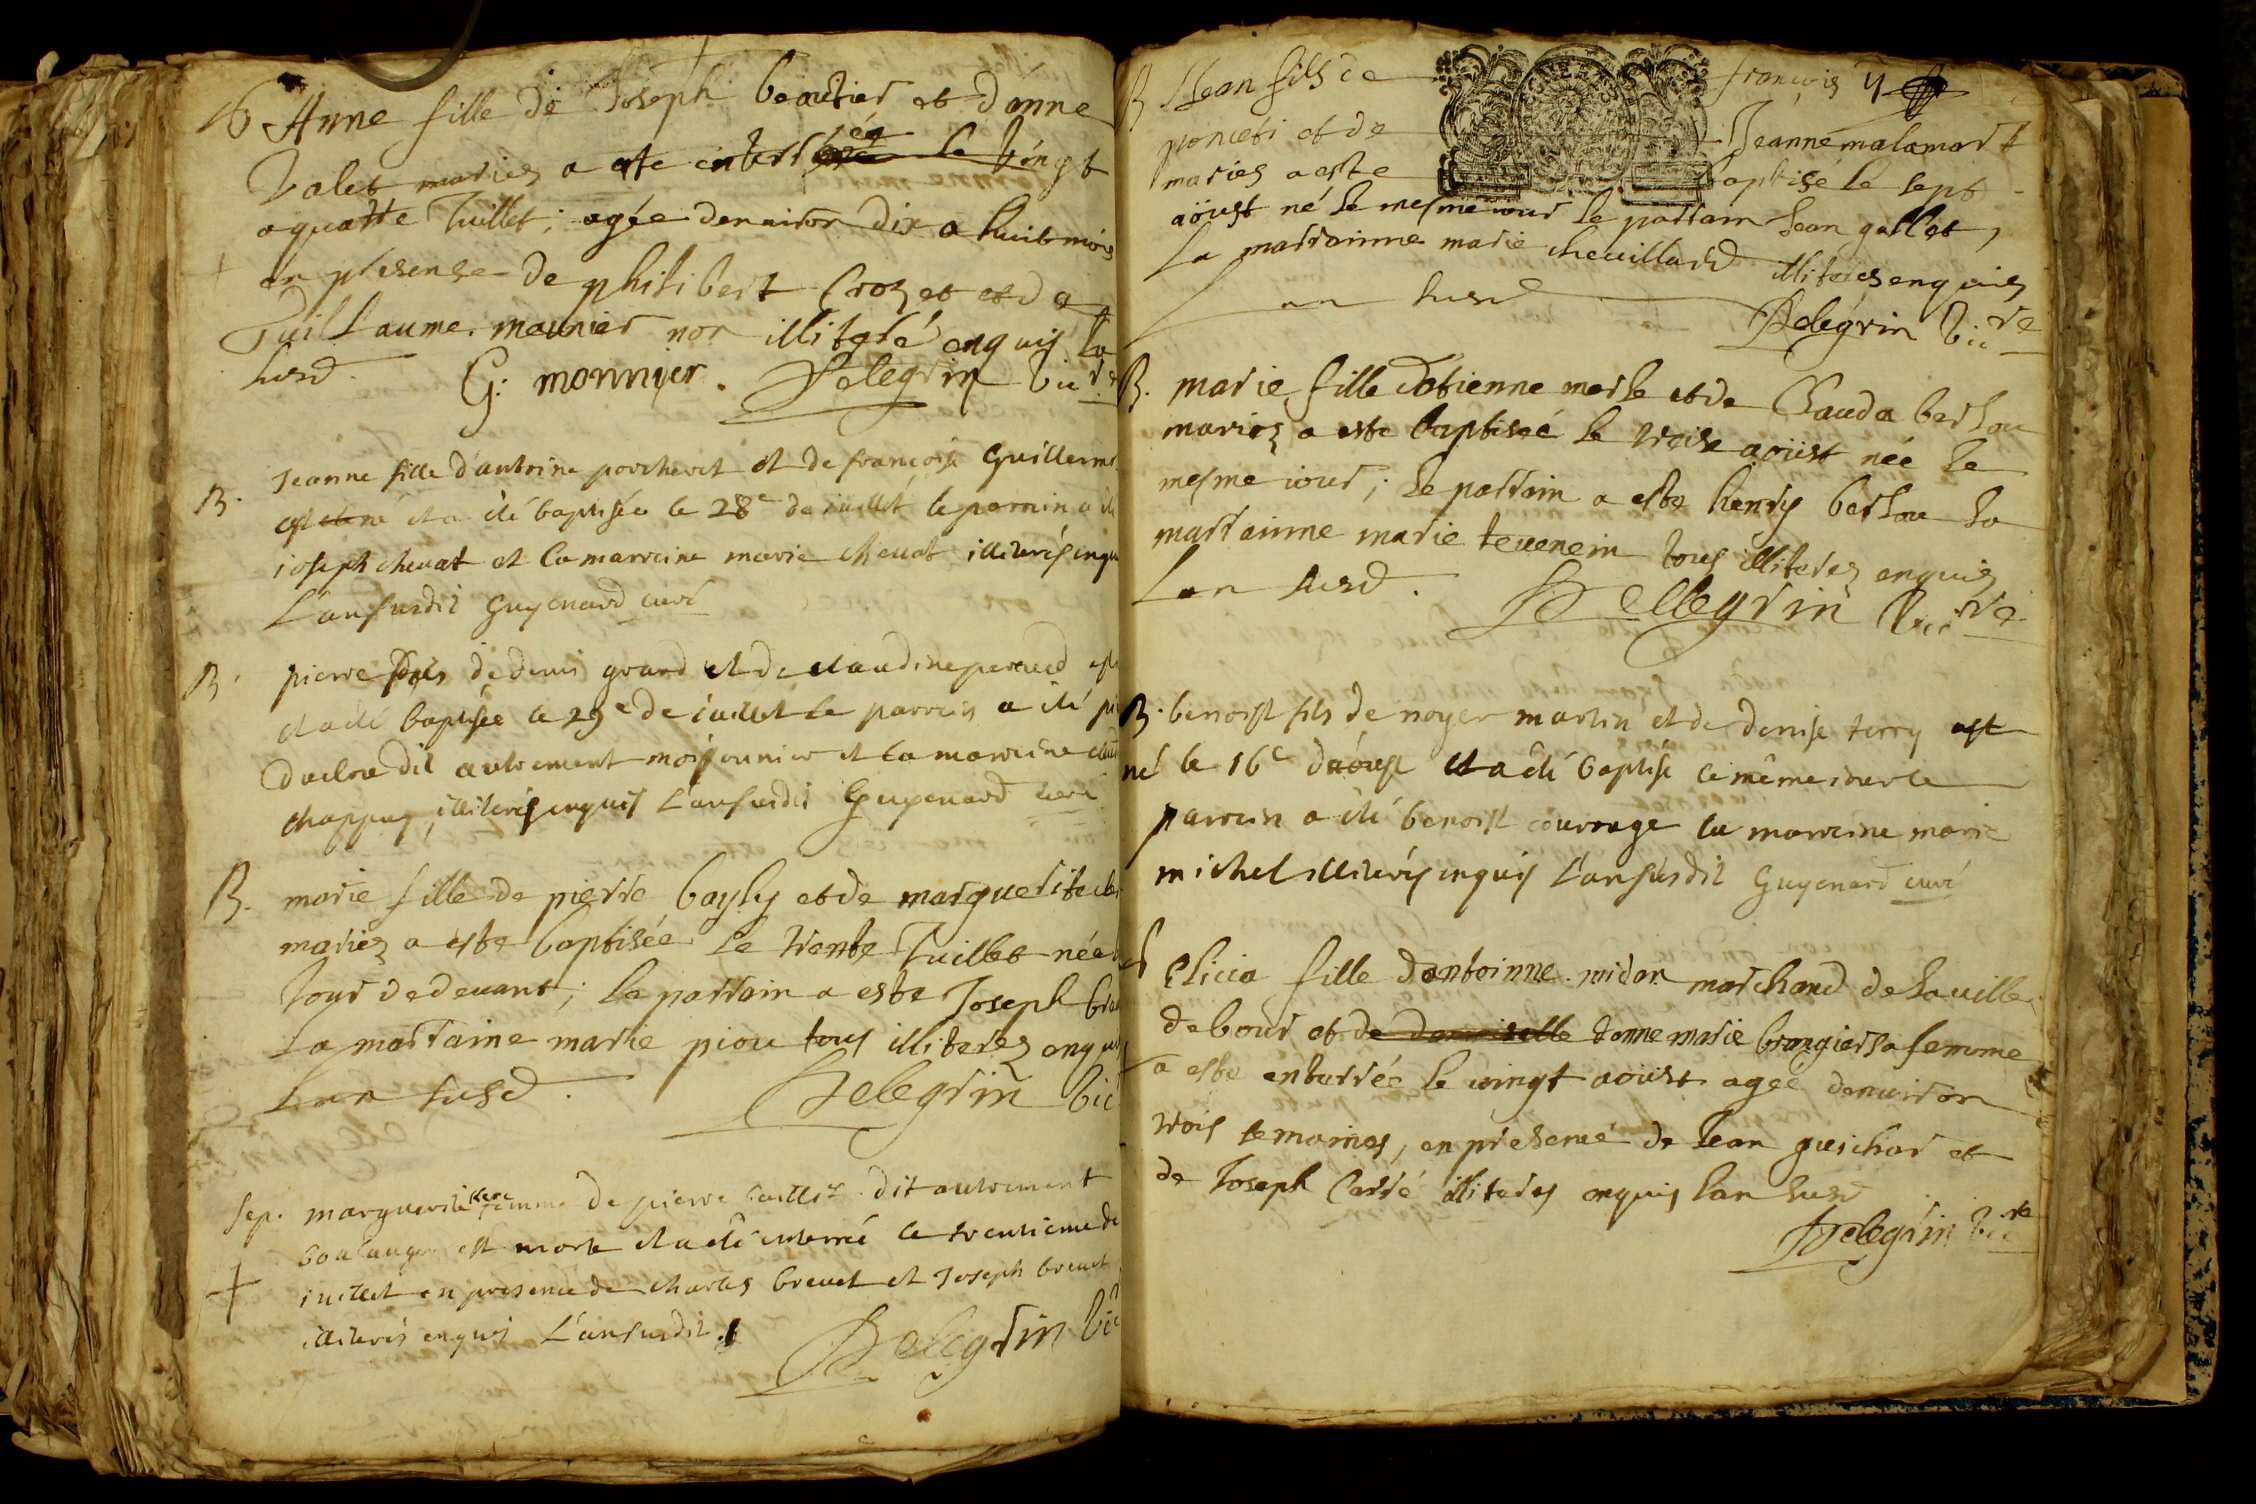 Anne fille de Joseph beautier et d'anne
Valet mariez a este enterrée le vingt
a quatre Juillet; agée denviron dix a huit mois
en presense de philibert Crozet et de
Guillaume. meunier non illiteré enquis la
susd. G: monnier. Pelegrin vic.re
B. Jeanne fille d'antoine porcheret et de françoise Guillerme
est né et a été baptisée le 28e de juillet le parrin a été
joseph chevat et la marreine marie chevat illiterés enqu
L'ansusdit Guyenard curé
B. pierre fils de denis grand et de claudine peraud est
et a été baptisée le 29e de juillet le parrein a été pi
dit autrement moissonnier et la marreine
chappuy illiterés enquis L'ansusdit Guyenard curé
B. marie fille de pierre bayly et de marguerite
mariez a este baptisée le trente Juillet née
Jour dedevant; le parrain a este Joseph
La marraine marie piou tous illiterez enqu
Lan susd. Pelegrin vic
Sep. marguerite femme de pierre dit autrement
boulanger est morte et a été enterré le trentieme de
juillet en presence de charles brevet et Joseph brevet
illiterés enquis L'ansusdit. Pelegrin vic
B Jean fils de françois
ponceti et de Jeanne malamart
mariez a este baptisé le sept
aoust né le mesme iour le parrain Jean gallet,
La marrainne marie chevillard illiteres enquis
Lan susd Pelegrin vic.re
B. marie fille d'etienne merle et de Clauda berlou
mariez a este baptiseé le troise aoust née le
mesme iour; le parrain a este henry berlou la
marrainne marie tevenein tous illiterez enquis
Lan susd. Pellegrin Vic.re
B. benoist fils de noyer martin et de denise terry est
né le 16e d'aoust et a été baptisé le même jour le
parrein a été benoist couvrage la marreine marie
michel illiterés enquis L'ansusdit Guyenard curé
Elicia fille dantoinne midan marchand de la ville
de bour et de damoiselle donne marie brangier sa femme
a este enterrée le vingt aoust ageé denviron
trois semaines, en presence de Jean guichar et
de Joseph Carré illiteres enquis lan susd
Pelegrin vic.re